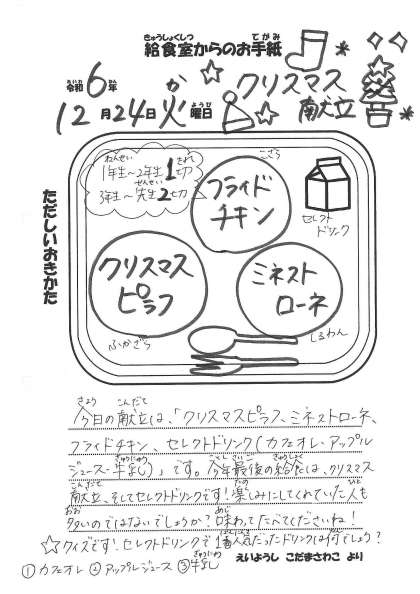 きゅうしょくしつ てがみ
給食室からのお手紙
れいわ ねん
令和6年
か ようび
12月24日火曜日
クリスマス
献立
ねんせい きれ
1年生〜2年生1切
せんせい
3年生〜先生2切
こざら
フライド
チキン
セレクト
ドリンク
クリスマス
ピラフ
ふかざら
ミネスト
ローネ
しるわん
ただしいおきかた
きょう こんだて
今日の献立は、「クリスマスピラフ、ミネストローネ、
フライドチキン、セレクトドリンク(カフェオレ・アップル
ぎゅうにゅう ことし さいご きゅうしょく
ジュース・牛乳)」です。今年最後の給食は、クリスマス
こんだて たの ひと
献立、そしてセレクトドリンクです!楽しみにしてくれていた人も
おお あじ
多いのではないでしょうか?味わってたべてくださいね!
☆クイズです!セレクトドリンクで1番人気だったドリンクは何でしょう?
ぎゅうにゅう
①カフェオレ ②アップルジュース ③牛乳
えいようし こだまさわこ より